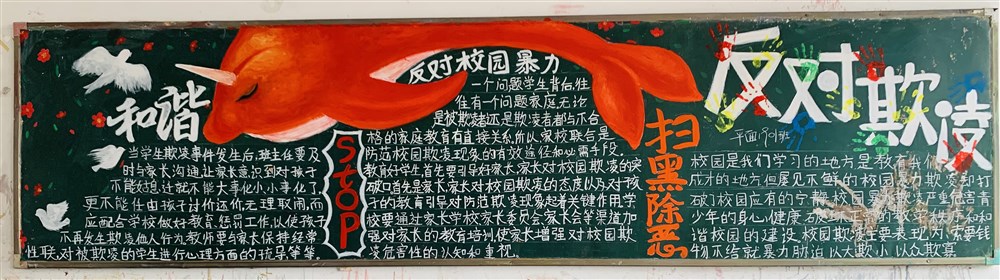 和谐
当学生欺凌事件发生后,班主任要及
时与家长沟通,让家长意识到对孩子
不能姑息迁就不能大事化小,小事化了,
更不能任由孩子讨价还价无理取闹,而
应配合学校做好教育惩罚工作,以使孩子
不再发生欺凌他人行为教师要与家长保持经常
性联,对被欺凌的学生进行心理方面的抚慰等等。
STOP
反对校园暴力
一个问题学生背后,往
往有一个问题家庭,无论
是被欺凌者还是欺凌者都与不合
格的家庭教育有直接关系,所以家校联合是
防范校园欺凌现象的有效途径和必需手段。
教育好学生,首先要引导好家长,家长对校园欺凌的突
破口首先是家长,家长对校园欺凌的态度以及对孩子
的教育引导对防范欺凌现象起着关键作用.学
校要通过家长学校家长委员会家长会等渠道加
强对家长的教育培训,使家长增强对校园欺
凌危害性的认知和重视。
扫黑除恶
反对欺凌
平面1901班
校园是我们学习的地方是教育我们
成才的地方但屡见不鲜的校园暴力欺凌却打
破了校园应有的宁静,校园欺凌严重危害青
少年的身心健康,破坏正常的教学秩序和和
谐校园的建设,校园欺凌主要表现为:索要钱
物不给就暴力胁迫,以大欺小,以众欺寡